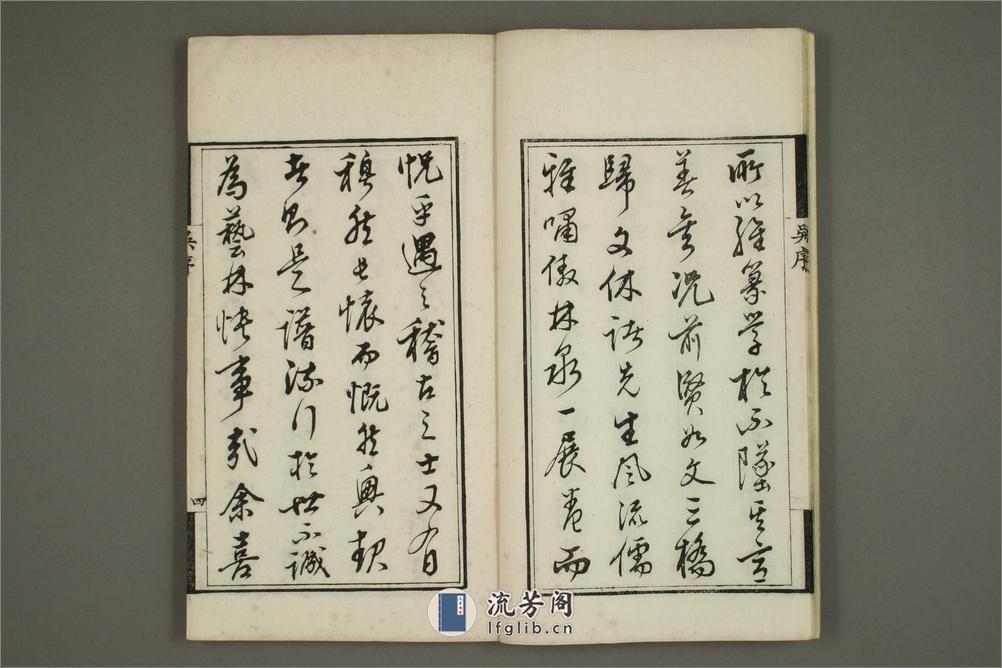 所以維篆學於不墜其言
善矣況前賢如文三橋
歸文休諸先生風流儒
雅嘯傲林泉一展卷而
怳乎遇之稽古之士又有日
穆然長懷而慨然興起
者則是譜流行於世不誠
為藝林快事哉余喜
吳序
吳序
四
流芳阁
lfglib.cn